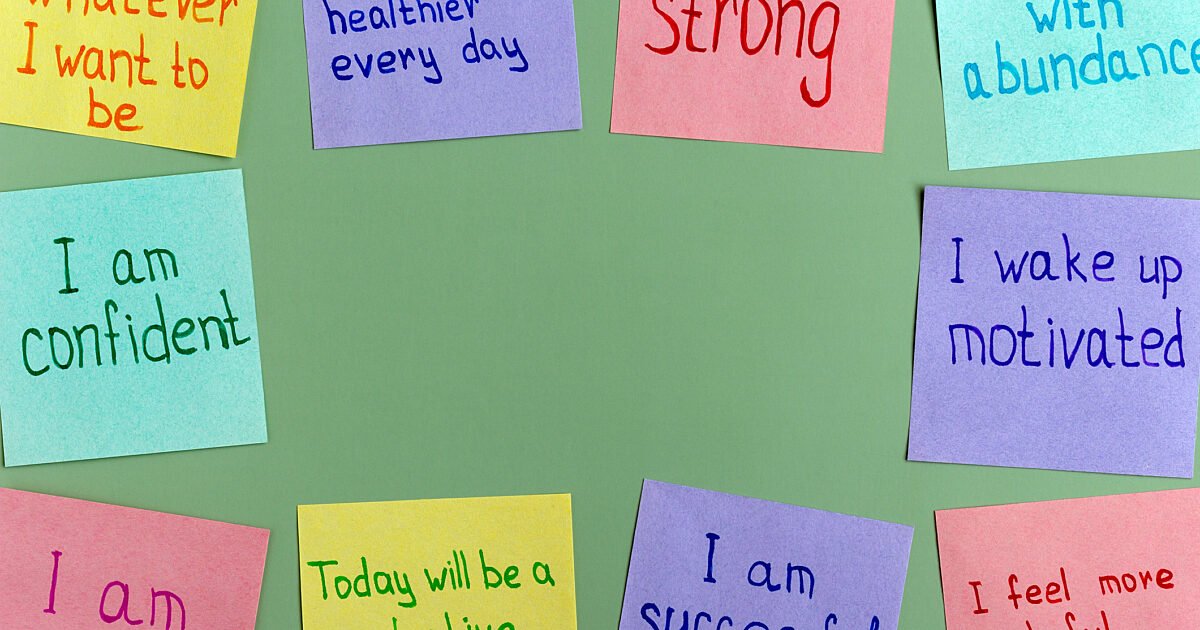 whatever
I want to
be
healthier
every day
strong
with
abundance
I am
confident
I wake up
motivated
I am
Today will be a
I am
successful
I feel more